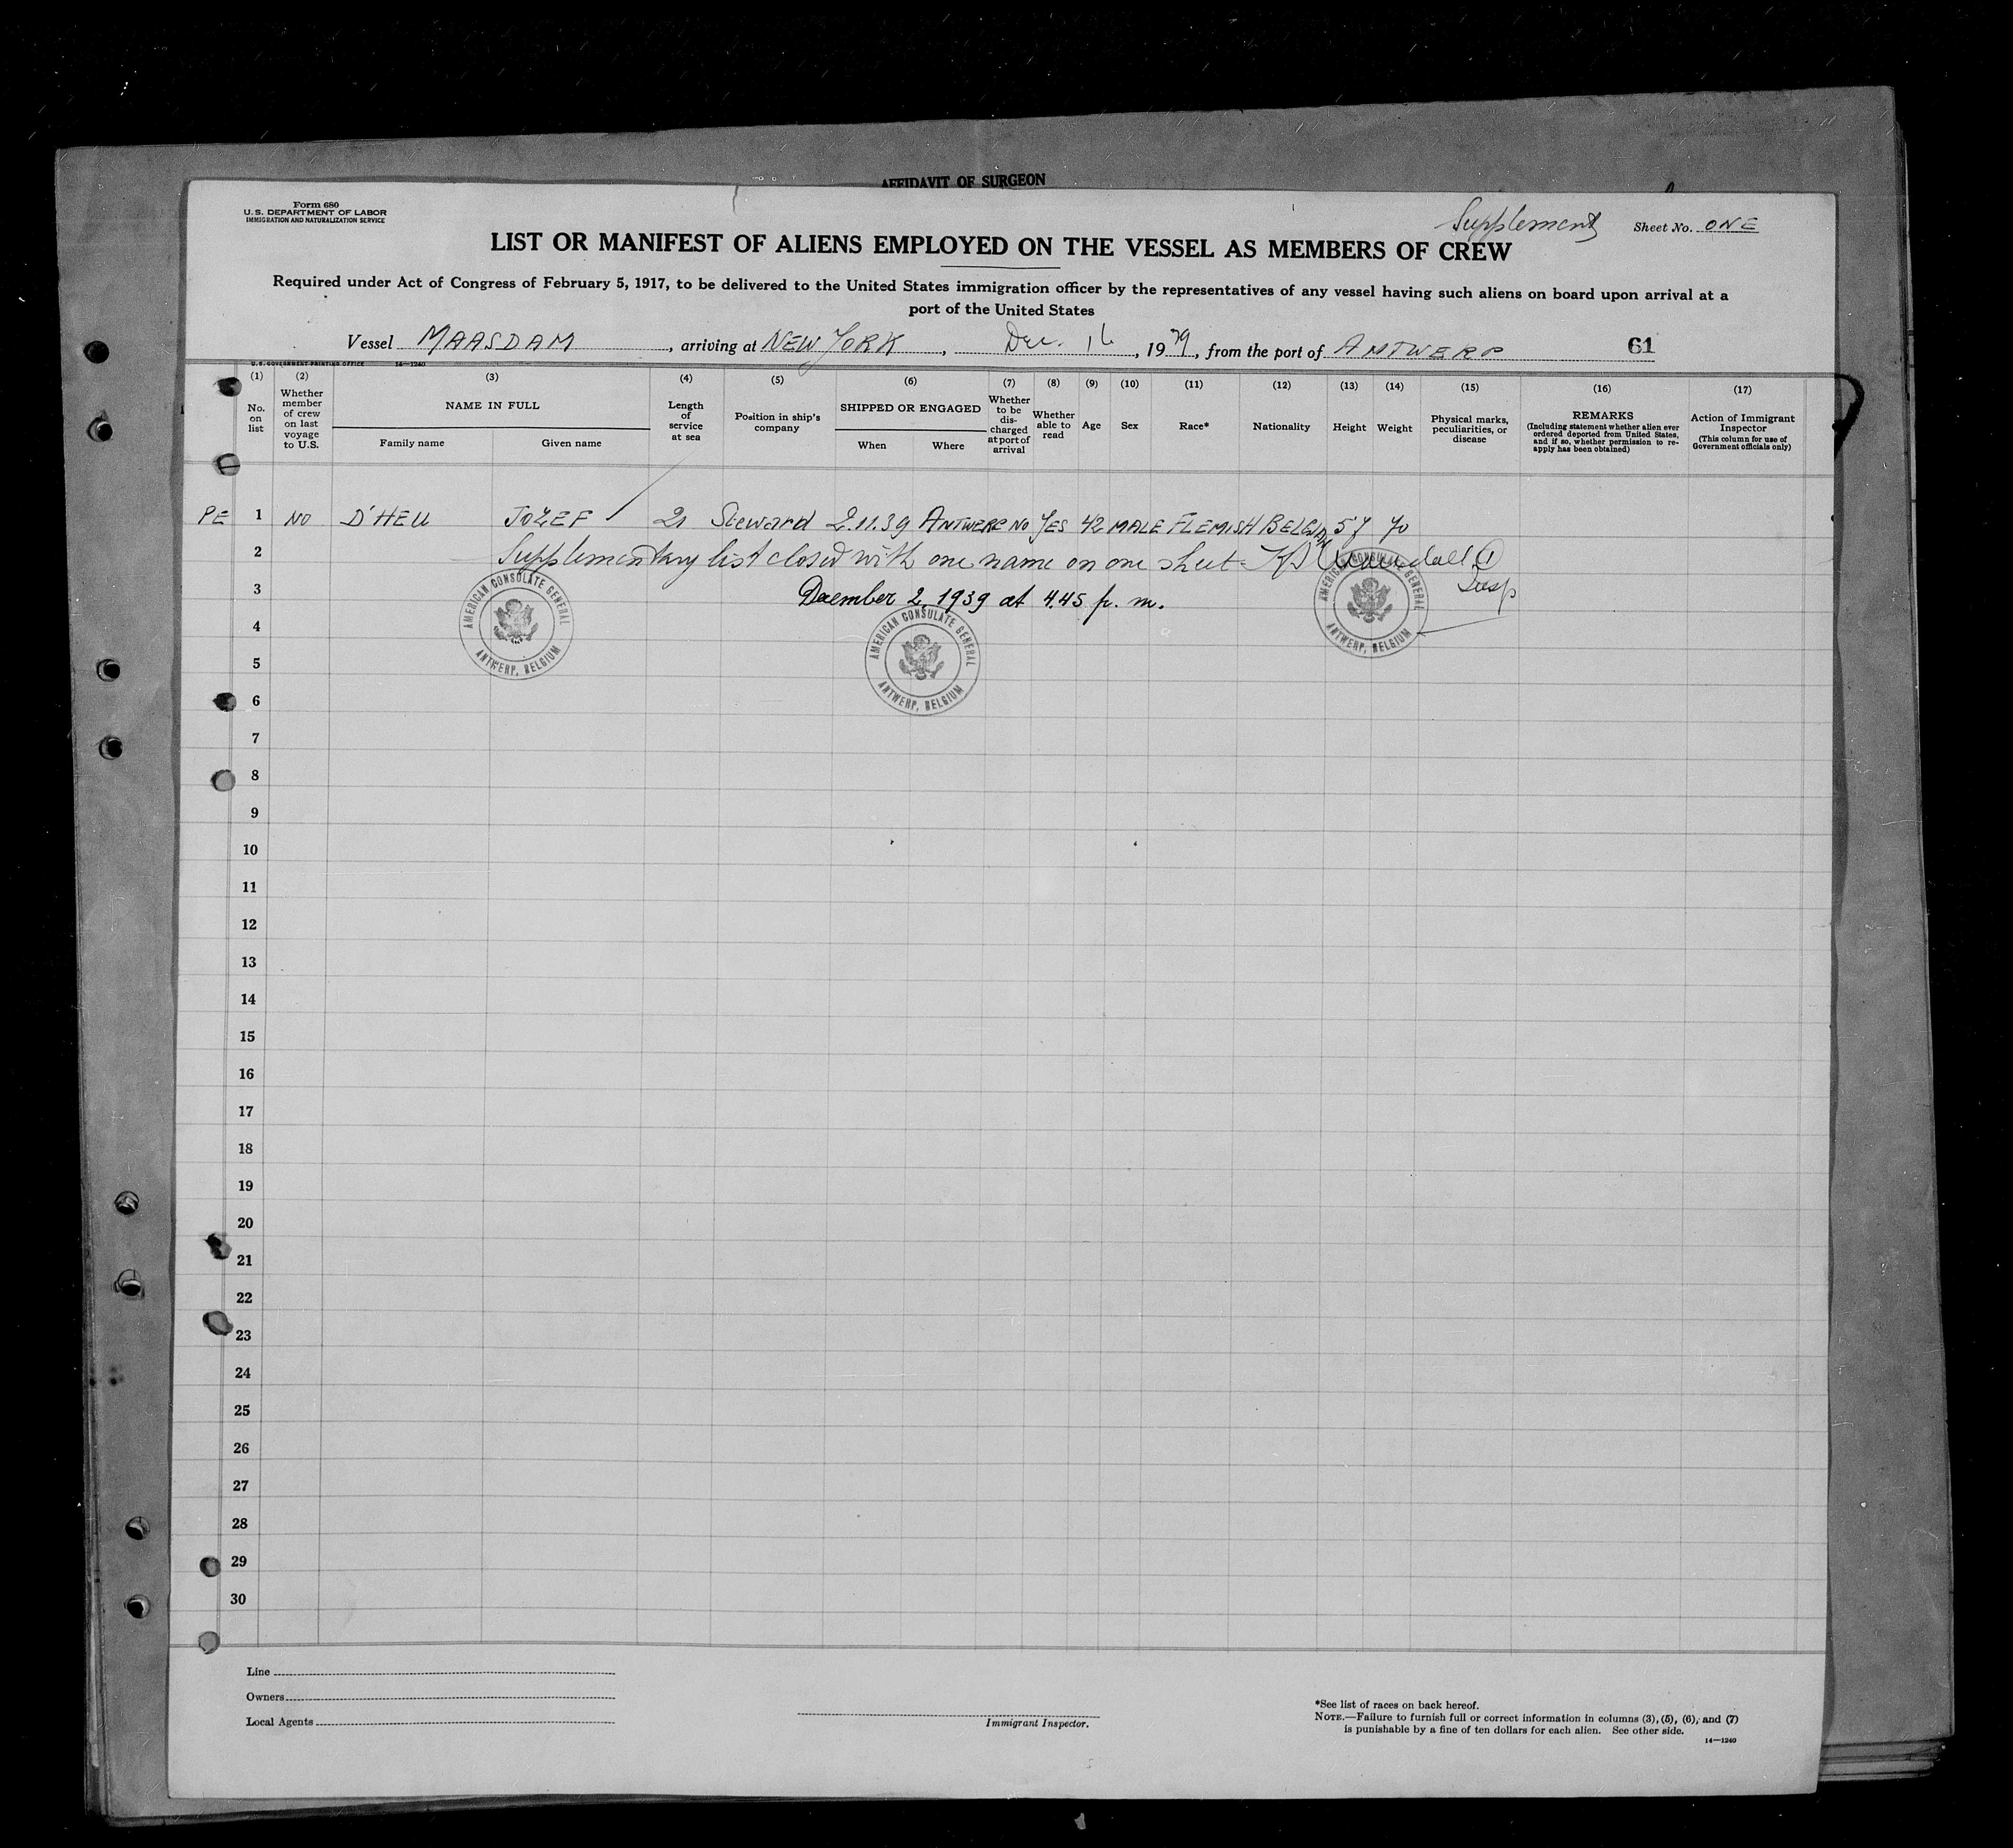 AFFIDAVIT OF SURGEON
Form 680
U. S. DEPARTMENT OF LABOR
IMMIGRATION AND NATURALIZATION SERVICE
Supplement Sheet No. ONE
LIST OR MANIFEST OF ALIENS EMPLOYED ON THE VESSEL AS MEMBERS OF CREW
Required under Act of Congress of February 5, 1917, to be delivered to the United States immigration officer by the representatives of any vessel having such aliens on board upon arrival at a
port of the United States
Vessel MAASDAM, arriving at NEW YORK, Dec. 16, 1939, from the port of ANTWERP 61
U. S. GOVERNMENT PRINTING OFFICE 14—1240
(1) (2) (3) (4) (5) (6) (7) (8) (9) (10) (11) (12) (13) (14) (15) (16) (17)
No. on list
Whether member of crew on last voyage to U.S.
NAME IN FULL
Family name Given name
Length of service at sea
Position in ship's company
SHIPPED OR ENGAGED
When Where
Whether to be discharged at port of arrival
Whether able to read
Age
Sex
Race*
Nationality
Height
Weight
Physical marks, peculiarities, or disease
REMARKS
(Including statement whether alien ever ordered deported from United States, and if so, whether permission to re-apply has been obtained)
Action of Immigrant Inspector
(This column for use of Government officials only)
PE 1 NO D'HEU JOZEF 21 Steward 2.11.39 ANTWERP NO YES 42 MALE FLEMISH BELGIAN 57 70
2 Supplementary list closed with one name on one sheet
3 December 2, 1939 at 4.45 p. m.
AMERICAN CONSULATE GENERAL
ANTWERP, BELGIUM
AMERICAN CONSULATE GENERAL
ANTWERP, BELGIUM
AMERICAN CONSULATE GENERAL
ANTWERP, BELGIUM
4
5
6
7
8
9
10
11
12
13
14
15
16
17
18
19
20
21
22
23
24
25
26
27
28
29
30
Line
Owners
Local Agents
Immigrant Inspector.
*See list of races on back hereof.
NOTE.—Failure to furnish full or correct information in columns (3), (5), (6), and (7)
is punishable by a fine of ten dollars for each alien. See other side.
14—1240